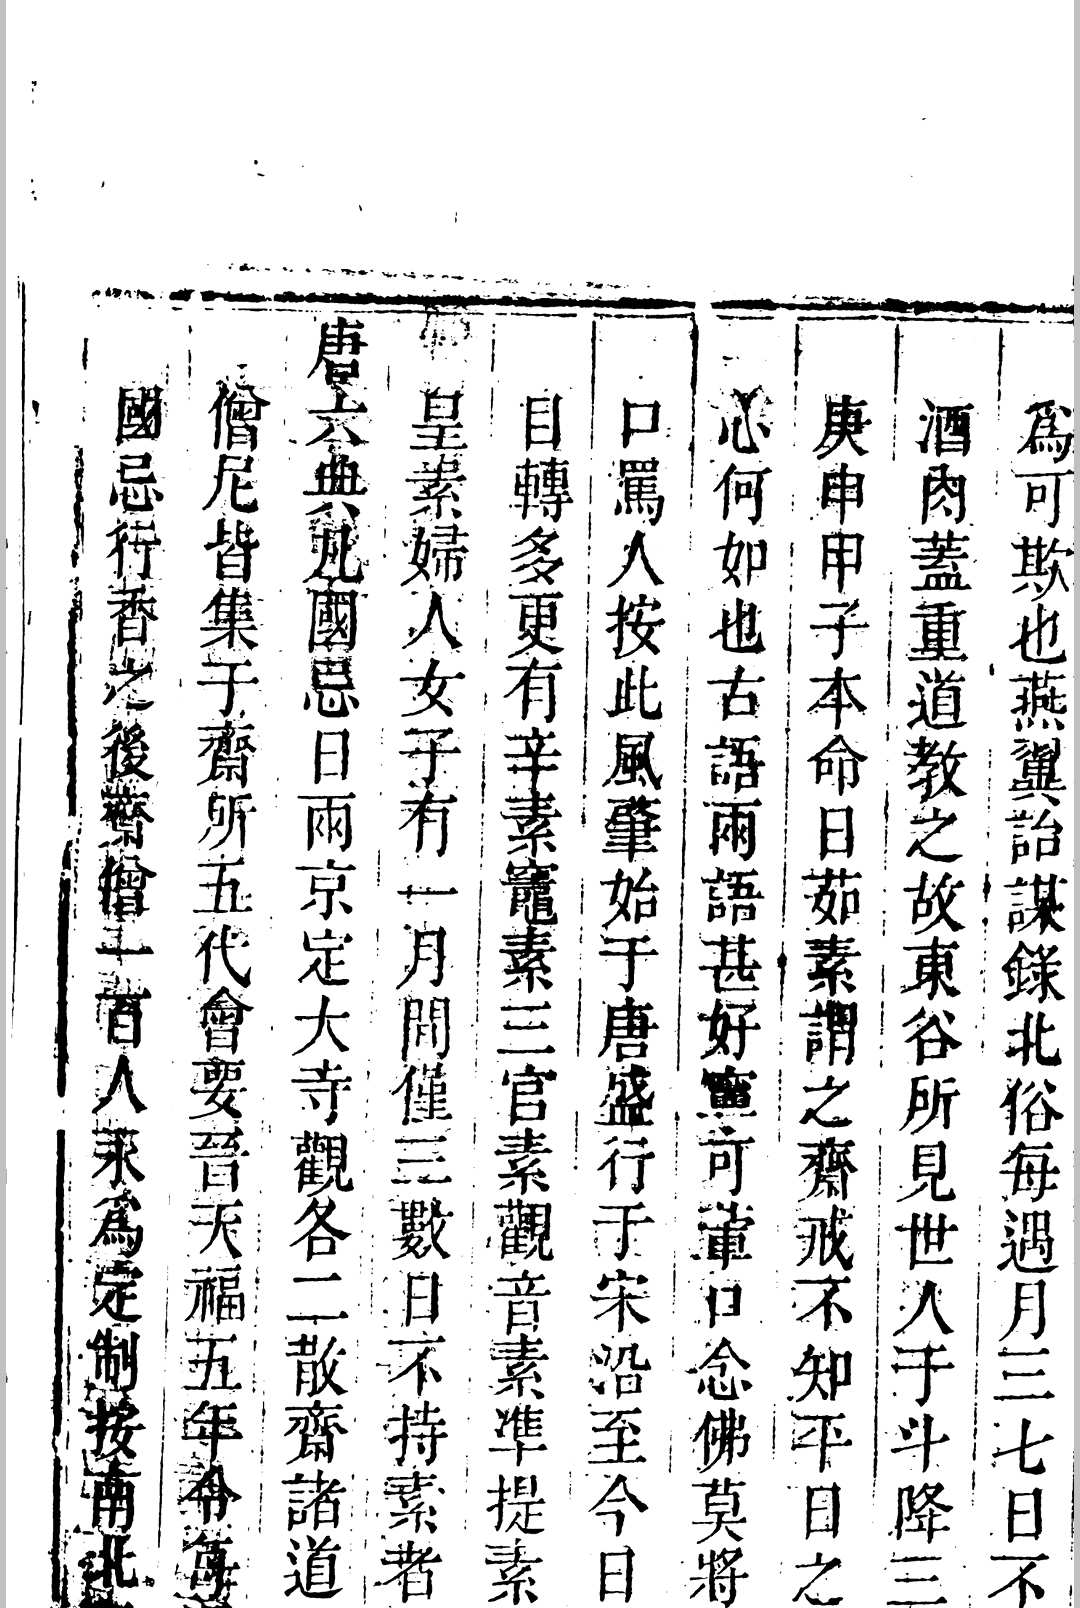 爲可欺也燕翼詒謀錄北俗每遇月三七日不
酒肉蓋重道教之故東谷所見世人于斗降三
庚申甲子本命日茹素謂之齋戒不知平日之
心何如也古語兩語甚好寧可葷口念佛莫將
口罵人按此風肇始于唐盛行于宋沿至今日
目轉多更有辛素竈素三官素觀音素準提素
皇素婦人女子有一月間僅三數日不持素者
唐六典凡國忌日兩京定大寺觀各二散齋諸道
僧尼皆集于齋所五代會要晉天福五年令每
國忌行香之後齋僧一百人永爲定制按南北